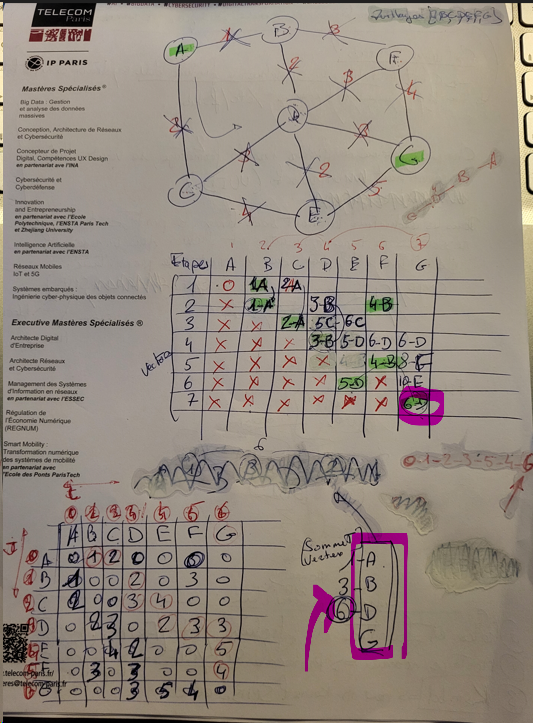 TELECOM
Paris
IP PARIS
Mastères Spécialisés®
Big Data : Gestion
et analyse des données
massives
Conception, Architecture de Réseaux
et Cybersécurité
Concepteur de Projet
Digital, Compétences UX Design
en partenariat avec l'INA
Cybersécurité et
Cyberdéfense
Innovation
and Entrepreneurship
en partenariat avec l'Ecole
Polytechnique, l'ENSTA Paris Tech
et Zhejiang University
Intelligence Artificielle
en partenariat avec l'ENSTA
Réseaux Mobiles
IoT et 5G
Systèmes embarqués :
Ingénierie cyber-physique des objets connectés
Executive Mastères Spécialisés ®
Architecte Digital
d'Entreprise
Architecte Réseaux
et Cybersécurité
Management des Systèmes
d'Information en réseaux
en partenariat avec l'ESSEC
Régulation de
l'Économie Numérique
(REGNUM)
Smart Mobility :
Transformation numérique
des systèmes de mobilité
en partenariat avec
l'Ecole des Ponts ParisTech
A B
D
E
G
B A
1 2 3 4 5 6 7
Etapes A B C D E F G
1 0 1A 2A
2 X 1-A 3-B 4-B
3 X X 2-A 5C 6C
4 X X X 3-B 5-D 6-D 6-D
5 X X X X 4-B 8-F
6 X X X X 5-D X 10-E
7 X X X X X X 6-D
0-1-2-3-5-4-6
0 1 2 3 4 5 6
A B C D E F G
A 0 1 2 0 0 0 0
B 1 0 0 2 0 3 0
C 2 0 0 3 4 0 0
D 0 2 3 0 2 3 3
E 0 0 4 2 0 0 5
F 0 3 0 3 0 0 4
G 0 0 0 3 5 4 0
Sommet
Vertex
1 - A
3 - B
6 - D
G